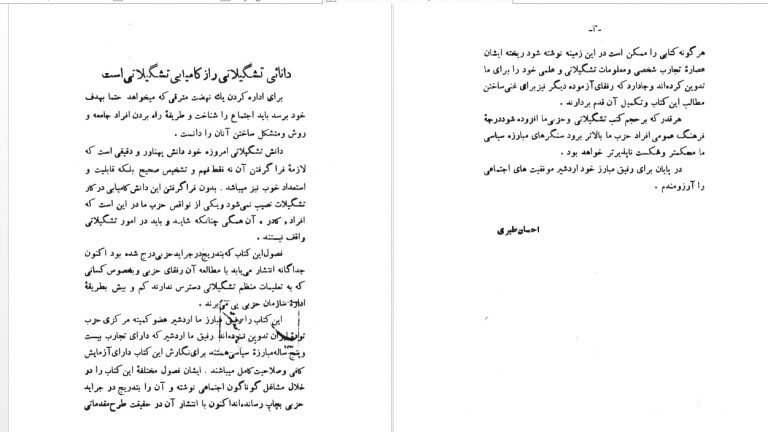 دانائی تشگیلاتی راز کامیابی تشگیلاتی است
برای اداره کردن یك نهضت مترقی که میخواهد حتما بهدف
خود برسد باید اجتماع را شناخت و طریقهٔ راه بردن افراد جامعه و
روش ومتشکل ساختن آنان را دانست .
دانش تشگیلاتی امروزه خود دانش پهناور و دقیقی است که
لازمهٔ فرا گرفتن آن نه فقط فهم و تشخیص صحیح بلکه قابلیت و
استعداد خوب نیز میباشد . بدون فراگرفتن این دانش کامیابی در کار
تشگیلات نصیب نمی‌شود ویکی از نواقص حزب ما در این است که
افراد و کادر ، آن همگی چنانکه شاید و باید در امور تشگیلاتی
واقف نیستند .
فصول این کتاب که بتدریج در جراید حزبی درج شده بود اکنون
جداگانه انتشار می‌یابد با مطالعه آن رفقای حزبی وبخصوص کسانی
که به تعلیمات منظم تشگیلاتی دسترس ندارند کم و بیش بطریقهٔ
ادارهٔ سازمان حزبی پی می‌برند .
این کتاب را رفیق مبارز ما اردشیر عضو کمیته مرکزی حزب
تودهٔ ایران تدوین نموده‌اند رفیق ما اردشیر که دارای تجارب بیست
و پنج ساله مبارزهٔ سیاسی هستند برای نگارش این کتاب دارای آزمایش
کافی و صلاحیت کامل میباشند . ایشان فصول مختلفهٔ این کتاب را در
خلال مشاغل گوناگون اجتماعی نوشته و آن را بتدریج در جراید
حزبی بچاپ رسانده‌اند اکنون با انتشار آن در حقیقت طرح مقدماتی
-۳-
هر گونه کتابی را ممکن است در این زمینه نوشته شود ریخته ایشان
عصارهٔ تجارب شخصی ومعلومات تشگیلاتی و علمی خود را برای ما
تدوین کرده‌اند وجادارد که رفقای آزموده دیگر نیز برای غنی ساختن
مطالب این کتاب وتکمیل آن قدم بردارند .
هر قدر که بر حجم کتب تشگیلاتی وحزبی ما افزوده شود ودرجهٔ
فرهنگ عمومی افراد حزب ما بالاتر برود سنگرهای مبارزه سیاسی
ما محکمتر وشکست ناپذیرتر خواهد بود .
در پایان برای رفیق مبارز خود اردشیر موفقیت های اجتماعی
را آرزومندم .
احسان طبری